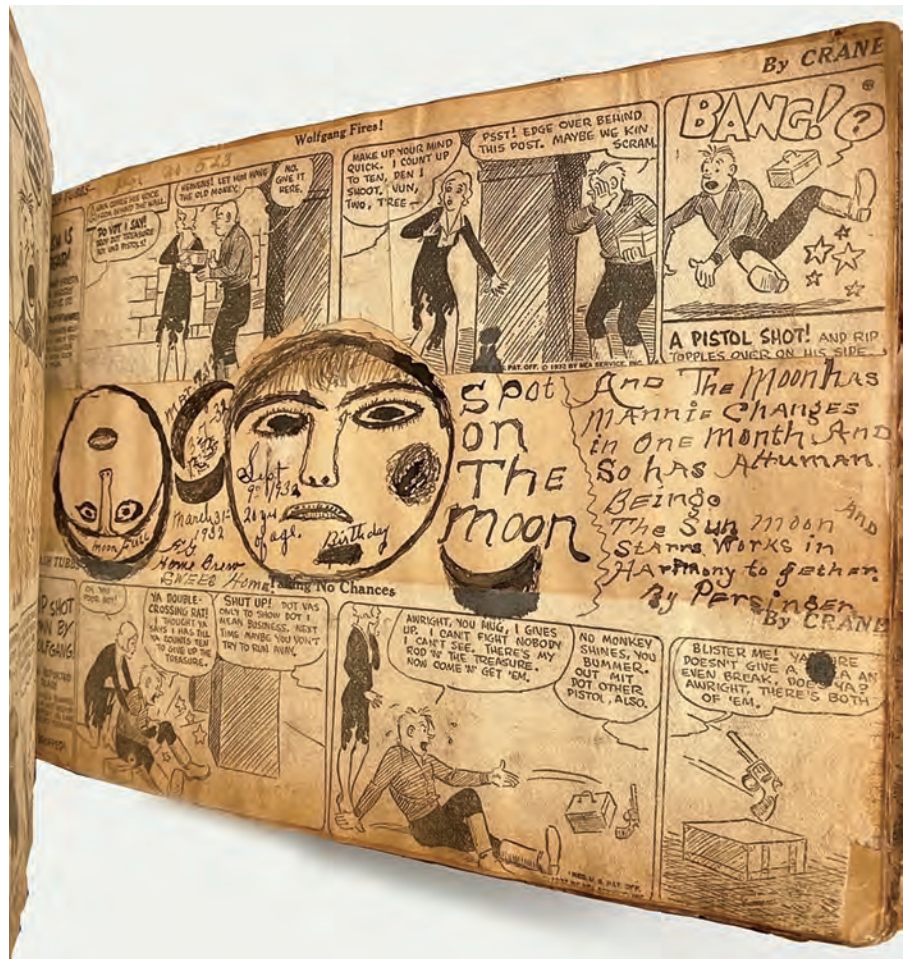 By CRANE
Wolfgang Fires!
DO VOT I SAY!
HEAVENS! LET HIM HAVE
THE OLD MONEY.
NO.
GIVE IT
HERE.
MAKE UP YOUR MIND
QUICK. I COUNT UP
TO TEN, DEN I
SHOOT, VUN,
TWO, T'REE—
PSST! EDGE OVER BEHIND
THIS POST. MAYBE WE KIN
SCRAM.
BANG!
?
PAT. OFF. © 1932 BY NEA SERVICE, INC.
A PISTOL SHOT! AND RIP
TOPPLES OVER ON HIS SIDE.
moon full
March 31-
1932
Home Brew
SWEED Home
Sept
9th 1932
20 yrs
of age.
Birthday
Spot
on
The
moon
And The Moon has
mannie Changes
in One month And
So has A Human
Beingo
The Sun moon And
Starrs Works in
HArmony to gether.
By Persinger
TUBBS
Taking No Chances
By CRANE
SHOT
BY
OH, YOU
POOR BOY!
YA DOUBLE-
CROSSING RAT!
I THOUGHT YA
SAYS I HAS TILL
YA COUNTS TEN
TO GIVE UP THE
TREASURE.
SHUT UP! DOT VAS
ONLY TO SHOW DOT I
MEAN BUSINESS. NEXT
TIME MAYBE YOU VON'T
TRY TO RUN AVAY.
AWRIGHT, YOU MUG, I GIVES
UP. I CAN'T FIGHT NOBODY
I CAN'T SEE. THERE'S MY
ROD 'N' THE TREASURE.
NOW COME 'N' GET 'EM.
NO MONKEY
SHINES, YOU
BUMMER.
OUT MIT
DOT OTHER
PISTOL, ALSO.
BLISTER ME!
DOESN'T GIVE A AN
EVEN BREAK, YA?
AWRIGHT, THERE'S BOTH
OF 'EM.
REG. U. S. PAT. OFF.